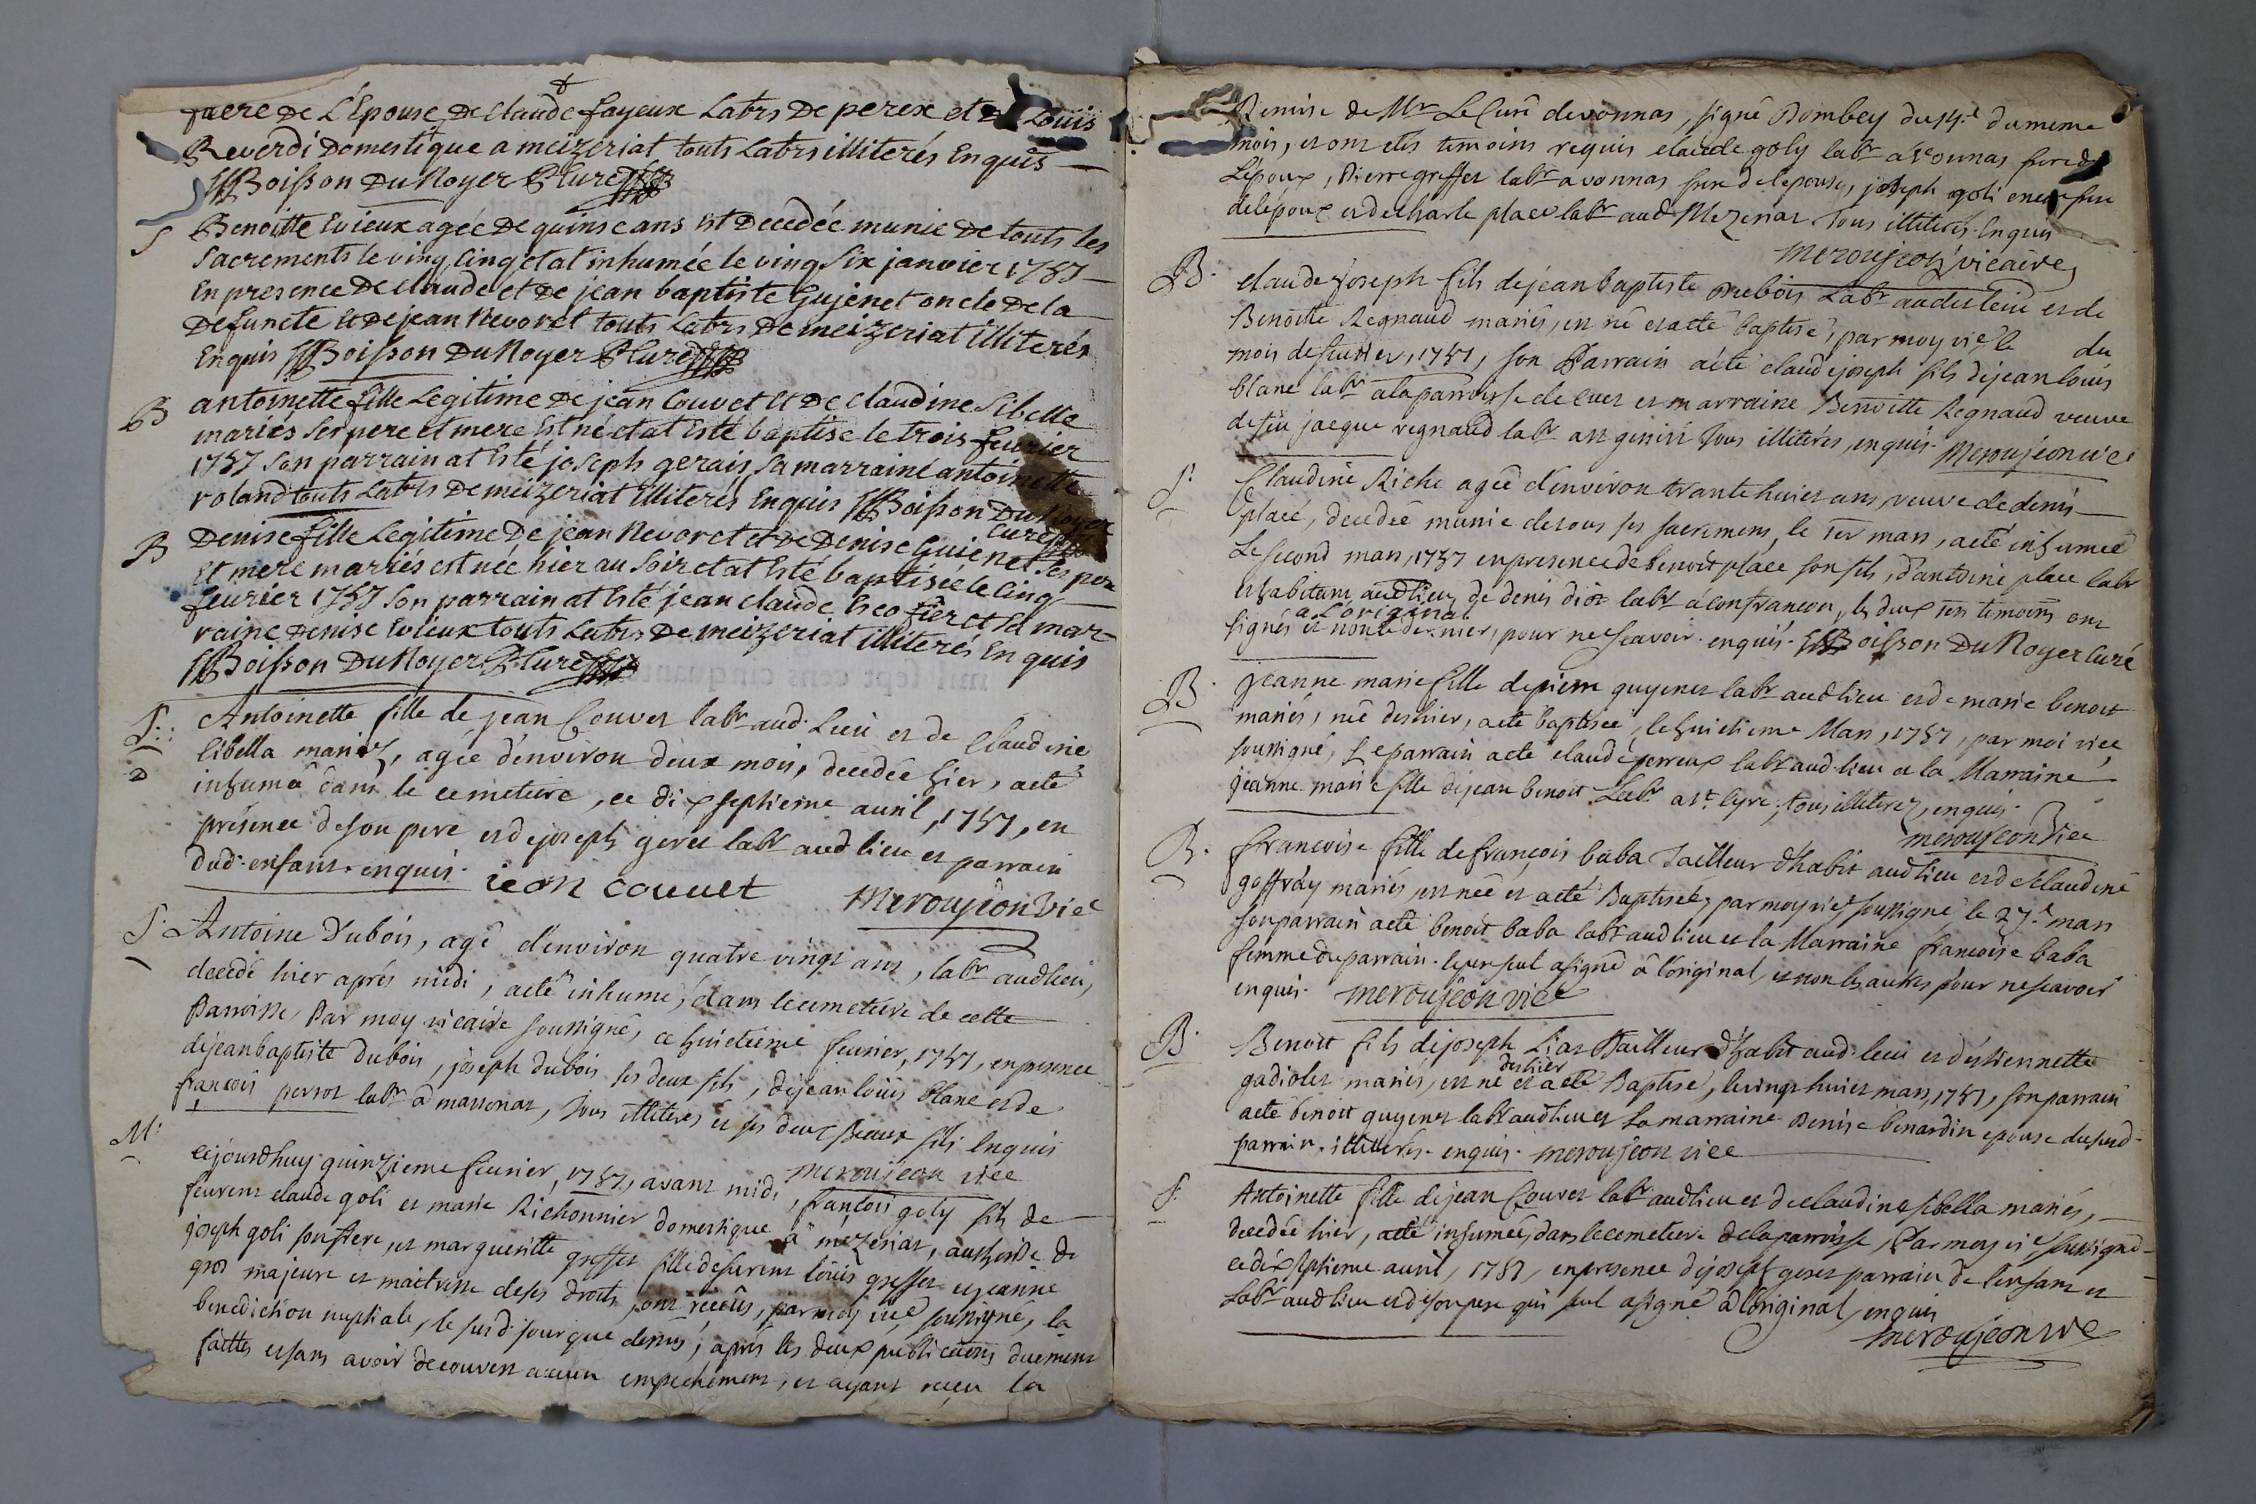 frere De L'Epouse De Claude fayeux Labrs De perex et De Louis
Reverdi Domestique a meizeriat touts Labrs illiterés Enquis
Boisson Du Noyer Curé
S Benoitte Evieux agée De quinse ans est Decedée munie De touts les
Sacrements le ving cinq et at inhumée le ving six janvier 1757
En presence De Claude et De jean baptiste Gujenet oncle De la
Defuncte et De jean Nevoret touts Labrs De meizeriat illiterés
Enquis Boisson Du Noyer Curé
B antoinette fille Legitime De jean Couvet et De Claudine Sibelle
mariés ses pere et mere est né et at esté baptise le trois feurier
1757 son parrain at esté joseph gerais, sa marraine antoinette
roland touts Labrs De meizeriat illiterés Enquis Boisson Du Noyer
Curé
B Denise fille Legitime De jean Nevoret et De Denise Guienet ses pere
Et mere mariés est née hier au soir et at esté baptisée le cinq
feurier 1757 son parrain at esté jean claude et sa mar-
raine Denise Evieux touts Labrs De meizeriat illiterés Enquis
Boisson Du Noyer Curé
S. Antoinette fille de jean Couvet labr aud. Lieu et de Claudine
Sibella mariez, agée d'environ deux mois, decedée hier, aété
2 inhumée dans le cemetiere, ce dixseptieme auril, 1757, en
présence de son pere et de joseph geret labr aud lieu et parrain
dud. enfant. enquis. iean couuet Meroujeon vice
S. Antoine Dubois, agé d'environ quatre vingt ans, labr audlieu,
decedé hier aprés midi, aeté inhumé, dans le cemetiere de cette
Parroisse, Par moy vicaire soussigné, ce huictieme feurier, 1757, en presence
dejeanbaptiste dubois, joseph dubois ses deux fils, dejean louis blanc et de
francois perrot labr à marsonat, Tous illiteres et ses deux Beaux fils Enquis
meroujeon vice
M. cejourdhuy quinzieme feurier, 1757, avant midi, françois goly fils de
feurent claude goli et marie Richonnier domestique à mezeriat, authorisé de
joseph goli son frere, et margueritte greffet fille defeurent loüis greffet et jeanne
gros majeure et maitresse deses droits, ont recûs, par moy vice soussigné, la
benediction nuptiale, le susd. jour que dessus, aprés les deux publications duement
faittes et sans avoir decouvert aucun empechement, et ayant receu la
Remise de Mr Le Curé de vonnas, signé Dombey du 14e du meme
mois, et ont etés temoins requis claude goly labr à Vonnas frere de
L'époux, Pierre greffet labr à vonnas frere de lepouse, joseph goli encor frere
de lépoux et de charle place labr aud Mezeriat Tous illiterés. Enquis
meroujeon vicaire
B. claude joseph fils de jean baptiste Dubois Labr audit leiu et de
Benoitte Regnaud mariés, est né et aété baptisé, par moy vice le du
mois defeurier, 1757, son Parrain aété claude joseph fils dejean louis
blanc labr ala parroisse de cuet et marraine Benoitte Regnaud veuve
defeu jacque regnaud labr a st genis Tous illitérés, enquis. Meroujeon vice
S. Claudine Riche agée d'environ trante huict ans, veuve de denis
place, decedée munie de tous ses sacremens, le 1er mars, aété inhumée
Le second mars, 1757 en presence de benoit place son fils, d'antoine place labr
et habitant audlieu, de denis diot labr à confrancon, les deux 1ers temoins ont
signés a L'original et non le dernier, pour ne scavoir. enquis. Boisson Du Noyer Curé
B. Jeanne marie fille de pierre guyenet labr audlieu et de marie benoit
mariés, née des hier, aeté baptisée, le huictieme Mars, 1757, par moi vice
soussigné, Le parrain aeté claude perreux labr aud. lieu et la Marraine
jeanne marie fille dejean benoit Labr. a st. Cyre, tous illiterez, enquis.
meroujeon Vice
B. francoise fille de françois baba Tailleur d'habit audlieu et de Claudine
goffray mariés, est née et aeté Baptisée, par moy vice soussigné le 27e mars
son parrain aeté benoit baba labr audlieu et la Marraine francoise baba
femme du parrain. le pere seul a signé à l'original, et non les autres pour ne scavoir
enquis. meroujeon vice
B. Benoit fils dejoseph Liat Tailleur d'habit aud. leiu et d'estiennette
gadiolet mariés, est né deshier et aeté Baptisé, le vingt huict mars, 1757, son parrain
aeté benoit guyenet labr audlieu et La marraine Denise benardin epouse du susd.
parrain. illiterés. enquis. meroujeon vice
S. Antoinette fille dejean Couvet labr audlieu et de claudine sibella mariés,
decedée hier, aété inhumée, dans le cemetiere de la parroisse, Par moy vice soussigné
ce dixseptieme auril, 1757, en presence dejoseph geret parrain de l'enfant et
Labr audlieu et de son pere qui seul a signé à l'original, enquis
meroujeon vice